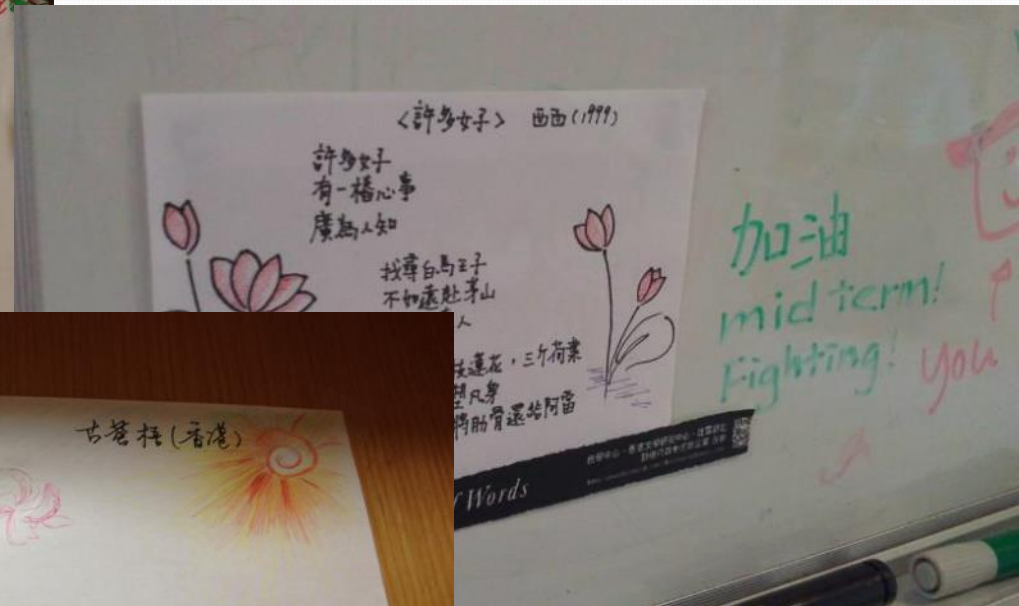 〈許多女子〉 西西(1999)
許多女子
有一樁心事
廣為人知
找尋白馬王子
不如遠赴茅山
人
蓮花,三斤荷葉
塑凡身
將肋骨還給阿當
Words
加油
mid term!
Fighting! You
古蒼梧(香港)